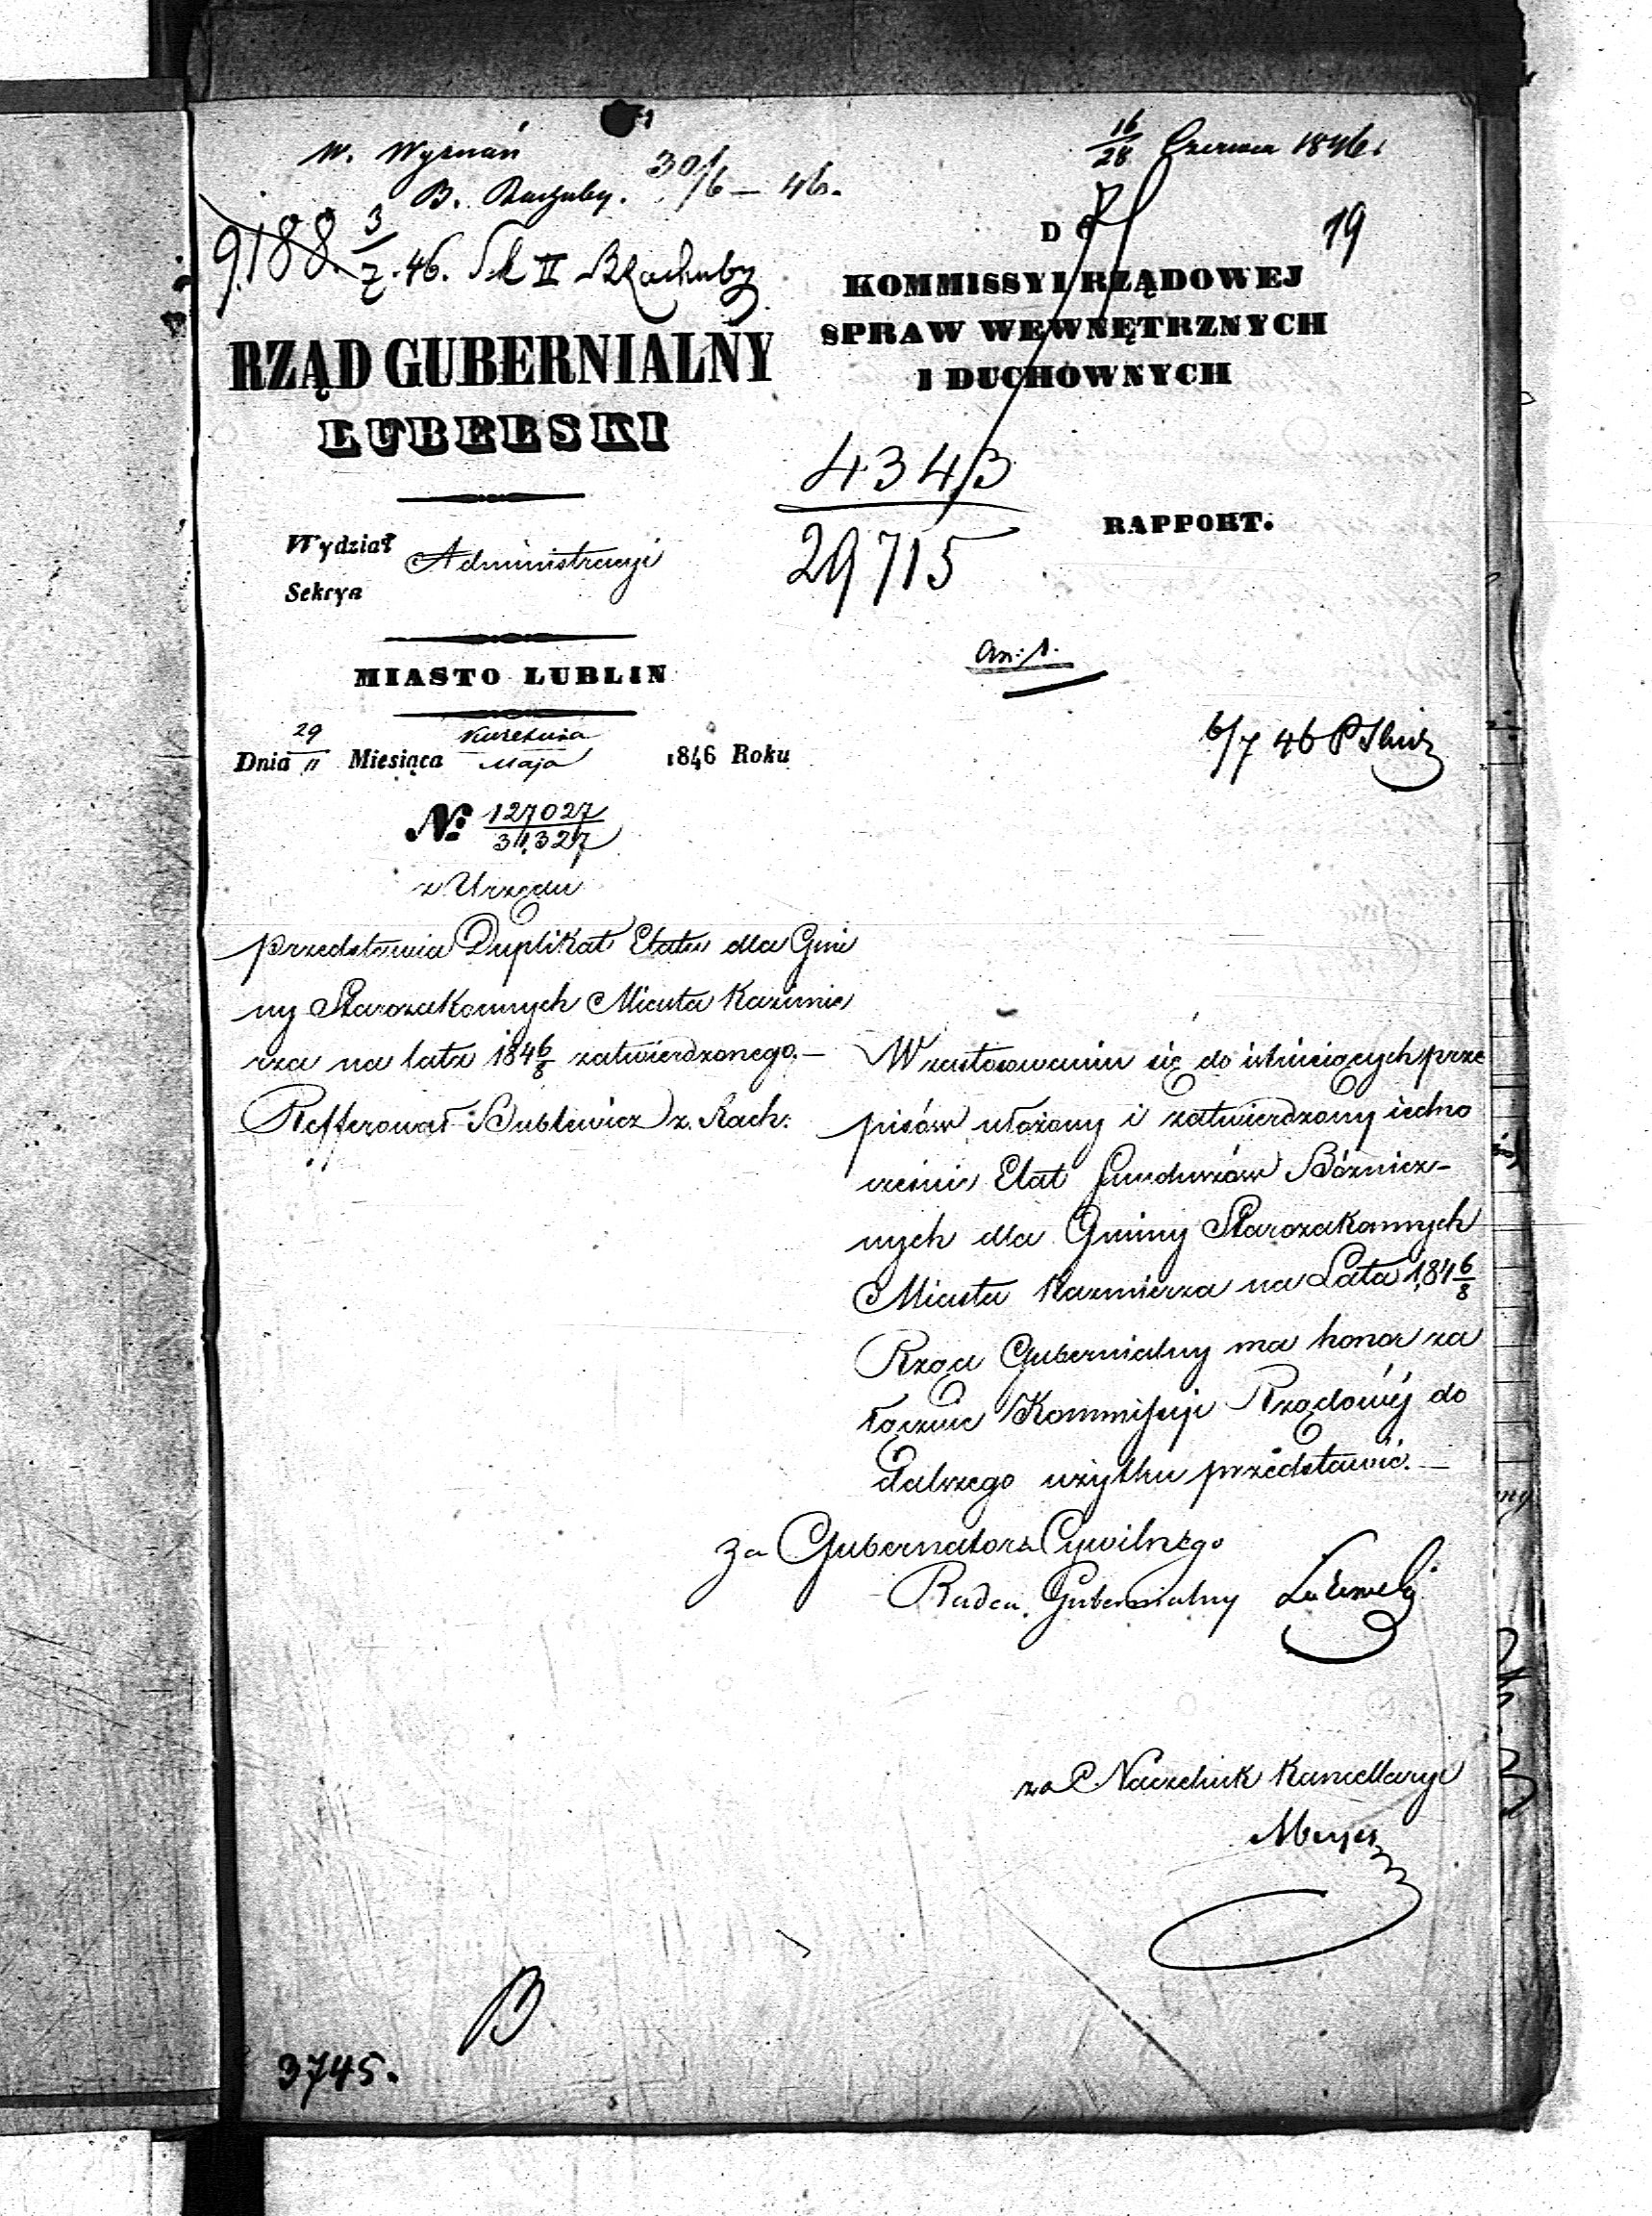 W. Wyznań
B. Rachuby. 30/6 – 46.
16/28 Czerwca 1846.
9188. 3/7. 46. Sek II B Rachuby
19
DO
KOMMISSYI RZĄDOWEJ
SPRAW WEWNĘTRZNYCH
I DUCHOWNYCH
RZĄD GUBERNIALNY
LUBELSKI
4343
29715
RAPPORT.
Wydział Administracyi
Sekcya
an: 1.
MIASTO LUBLIN
6/7 46
Dnia 29/11 Miesiąca Kwietnia/Maja 1846 Roku
№ 127027/34,327
z Urzędu
przedstawia Duplikat Etatu dla Gmi
ny Starozakonnych Miasta Kazimie
rza na lata 1846/8 zatwierdzonego.—
Refferował Bublewicz z. Rach:
W zastosowaniu się do istnieiących prze
pisów ułożony i zatwierdzony iedno
cześnie Etat Funduszów Bóżnicz-
nych dla Gminy Starozakonnych
Miasta Kazmierza na Lata 1846/8
Rząd Gubernialny ma honor za
łącznie Kommissyi Rządowéj do
dalszego użytku przedstawić.—
Za Gubernatora Cywilnego
Radca Gubernialny
za Naczelnik Kancellaryi
Meyer
B
3745.